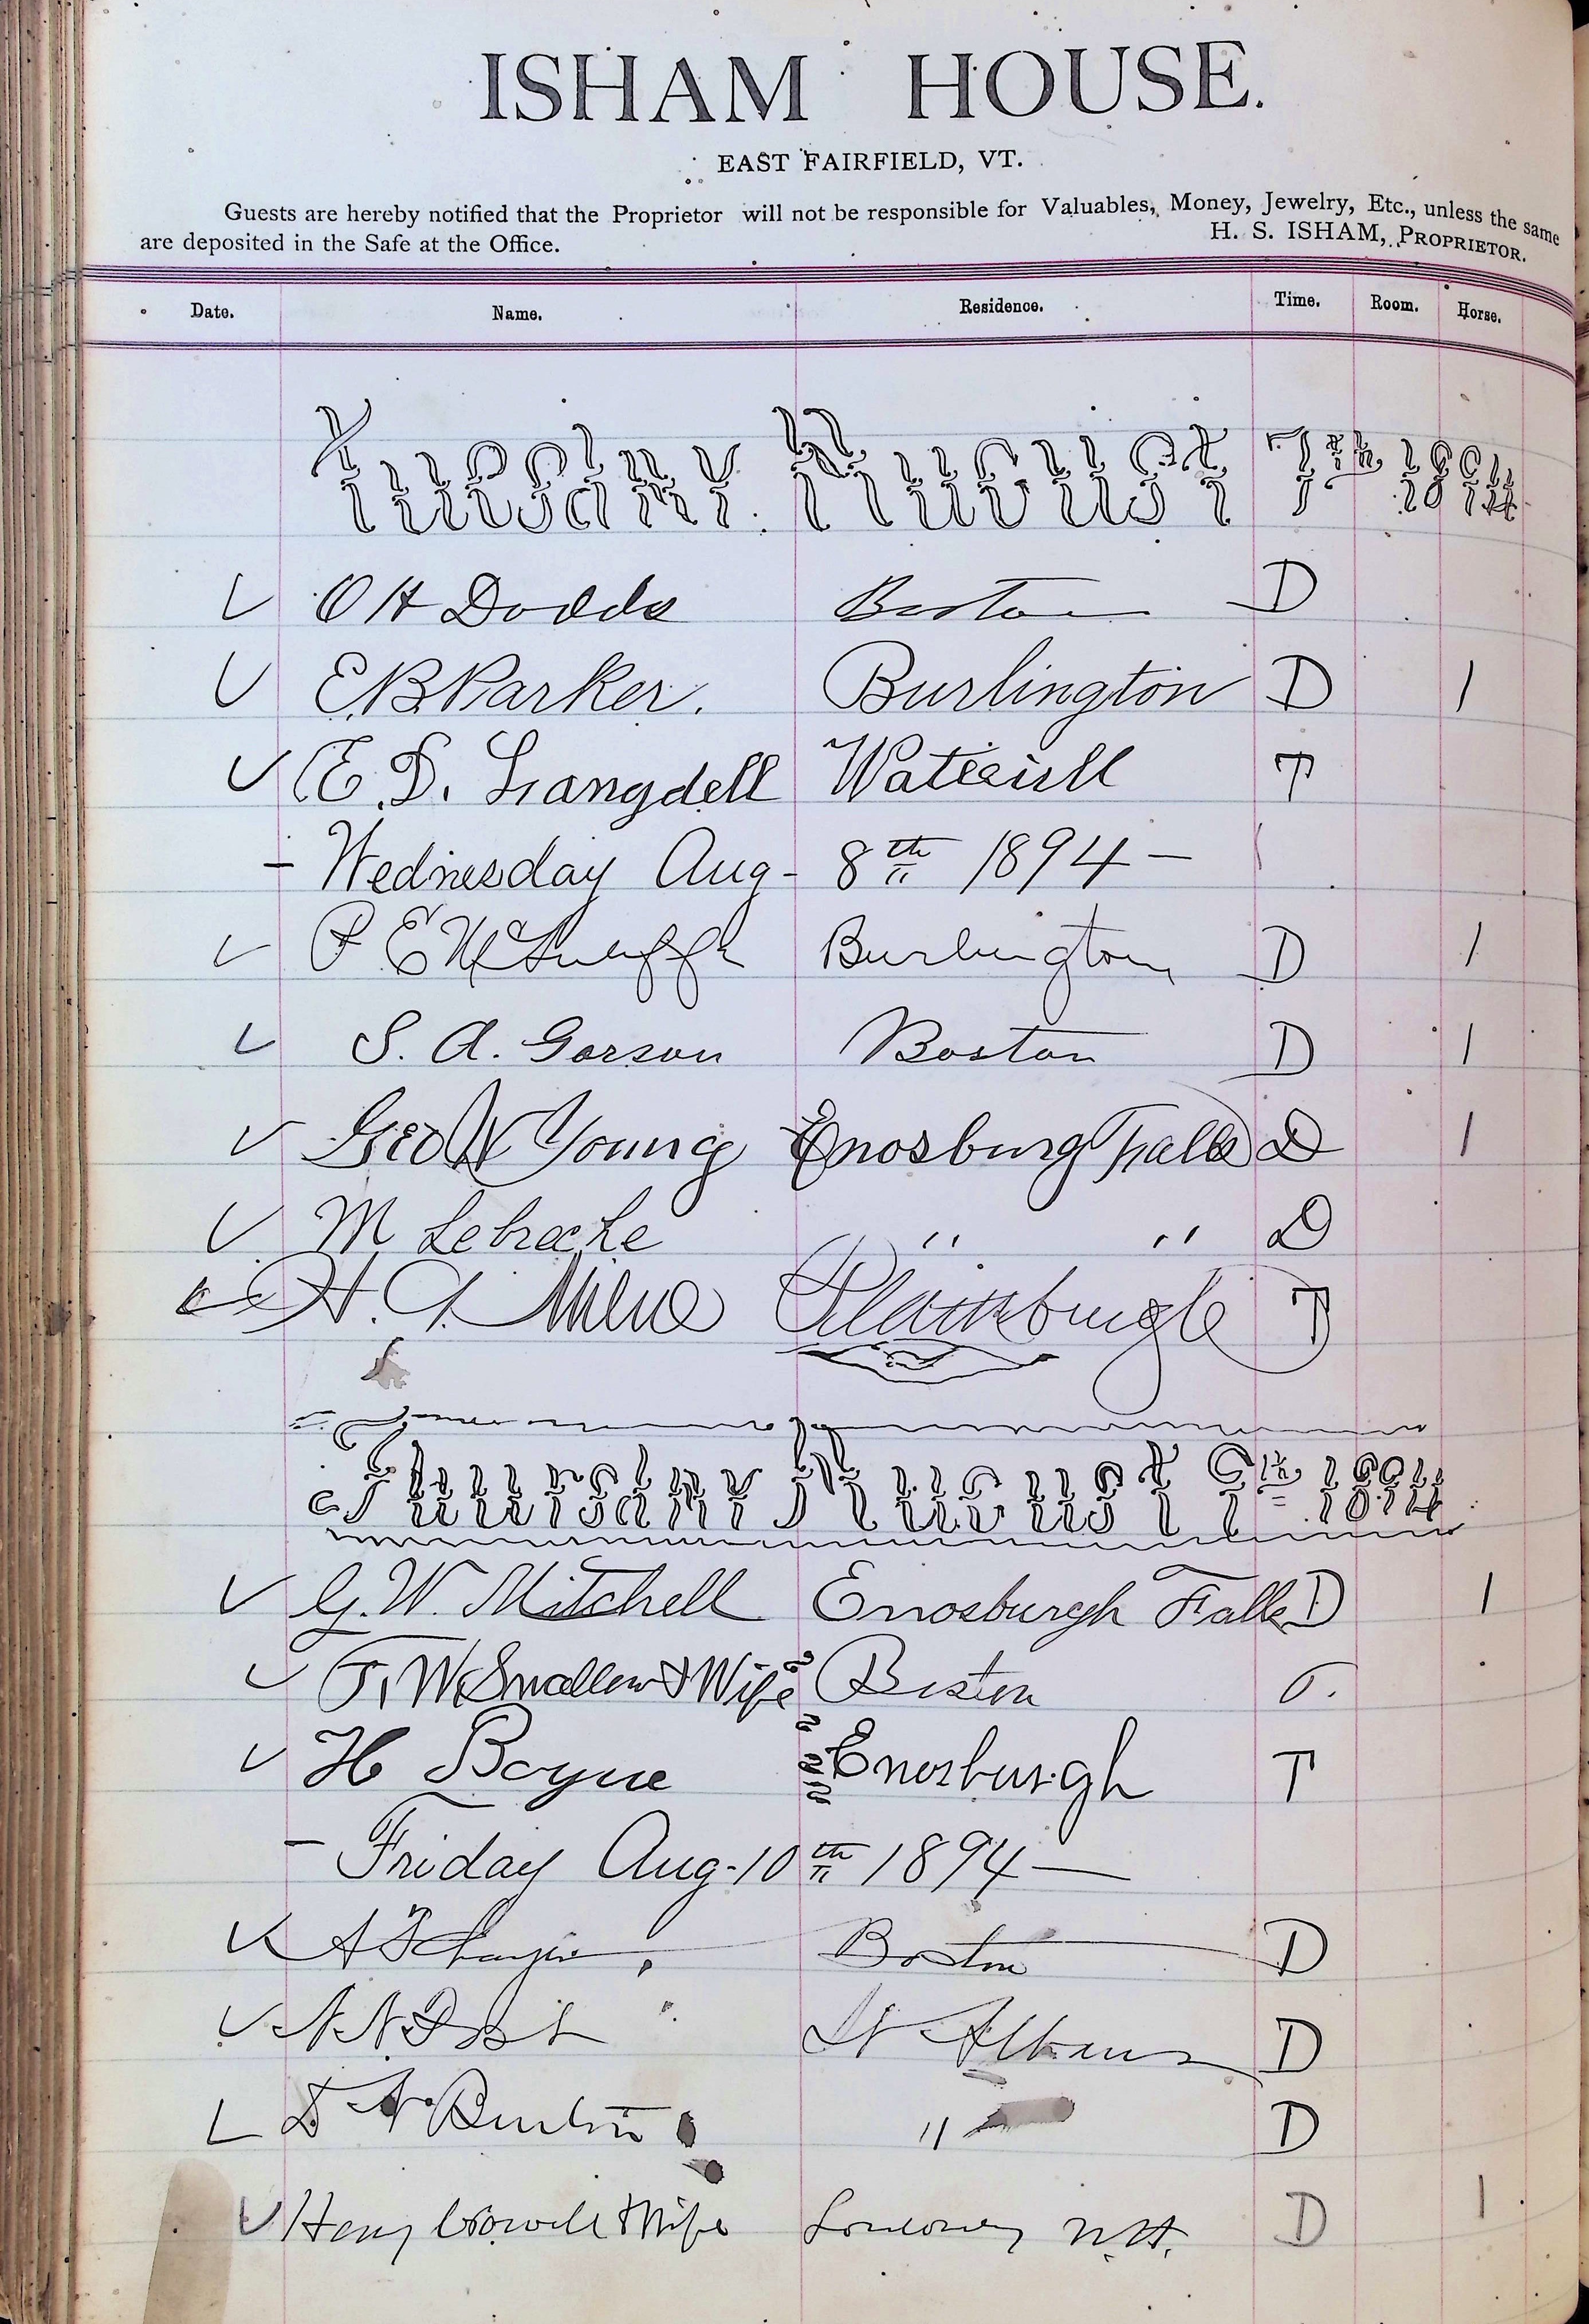 ISHAM HOUSE.
EAST FAIRFIELD, VT.
Guests are hereby notified that the Proprietor will not be responsible for Valuables, Money, Jewelry, Etc., unless the same
are deposited in the Safe at the Office. H. S. ISHAM, PROPRIETOR.
Date. Name. Residence. Time. Room. Horse.
Tuesday August 7th 1894
O H Dodds Boston D
E.B. Parker. Burlington D 1
E. D. Langdell T
- Wednesday Aug- 8th 1894 -
P E Burlington D 1
S. A. Gorson Boston D 1
Geo W Young Enosburg Falls D 1
M " " D
H. G. Milne T
Thursday August 9th 1894
G. W. Mitchell Enosburgh Falls D 1
T. W. Smallen & Wife Boston
H Boyne Enosburgh T
- Friday Aug-10th 1894 -
Boston D
St Albans D
" D
Henry & Wife N.H. D 1